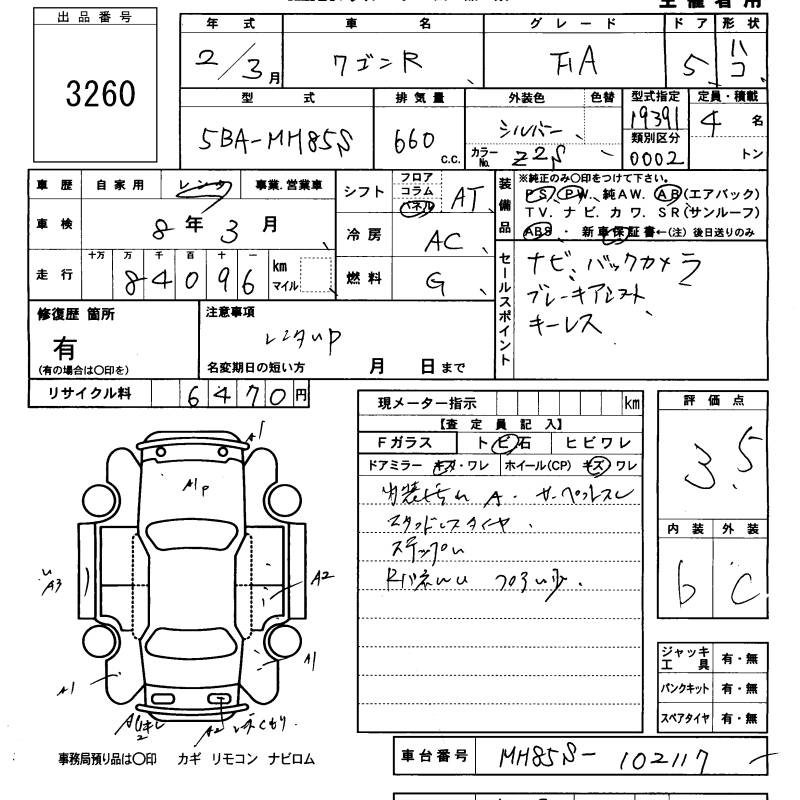 出品番号
3260
年式 車名 グレード ドア 形状
2/3月 ワゴンR FA 5 ハコ
型式 排気量 外装色 色替 型式指定 定員・積載
5BA-MH85S 660 c.c. シルバー 19391 4名
カラーNo. Z2S 類別区分 0002 トン
車歴 自家用 レンタ 事業.営業車
車検 8年3月
走行 十万 万 千 百 十 一
84096 km マイル
シフト フロア コラム パネル AT
冷房 AC
燃料 G
装備品
※純正のみ〇印をつけて下さい。
PS. PW. 純AW. AB(エアバック)
TV. ナビ. カワ. SR(サンルーフ)
ABS ・ 新車保証書←(注) 後日送りのみ
セールスポイント
ナビ、バックカメラ
ブレーキアシスト
キーレス
修復歴 箇所
有
(有の場合は〇印を)
注意事項
レンタup
名変期日の短い方 月 日まで
リサイクル料 6470円
現メーター指示 km
【査定員記入】
Fガラス トビ石 ヒビワレ
ドアミラー キズ・ワレ ホイール(CP) キズ ワレ
スタッドレスタイヤ.
評価点
3.5
内装 外装
b C
A1
A1p
A3
A2
A1
A1
A2
ジャッキ工具 有・無
パンクキット 有・無
スペアタイヤ 有・無
事務局預り品は〇印 カギ リモコン ナビロム
車台番号 MH85S-102117